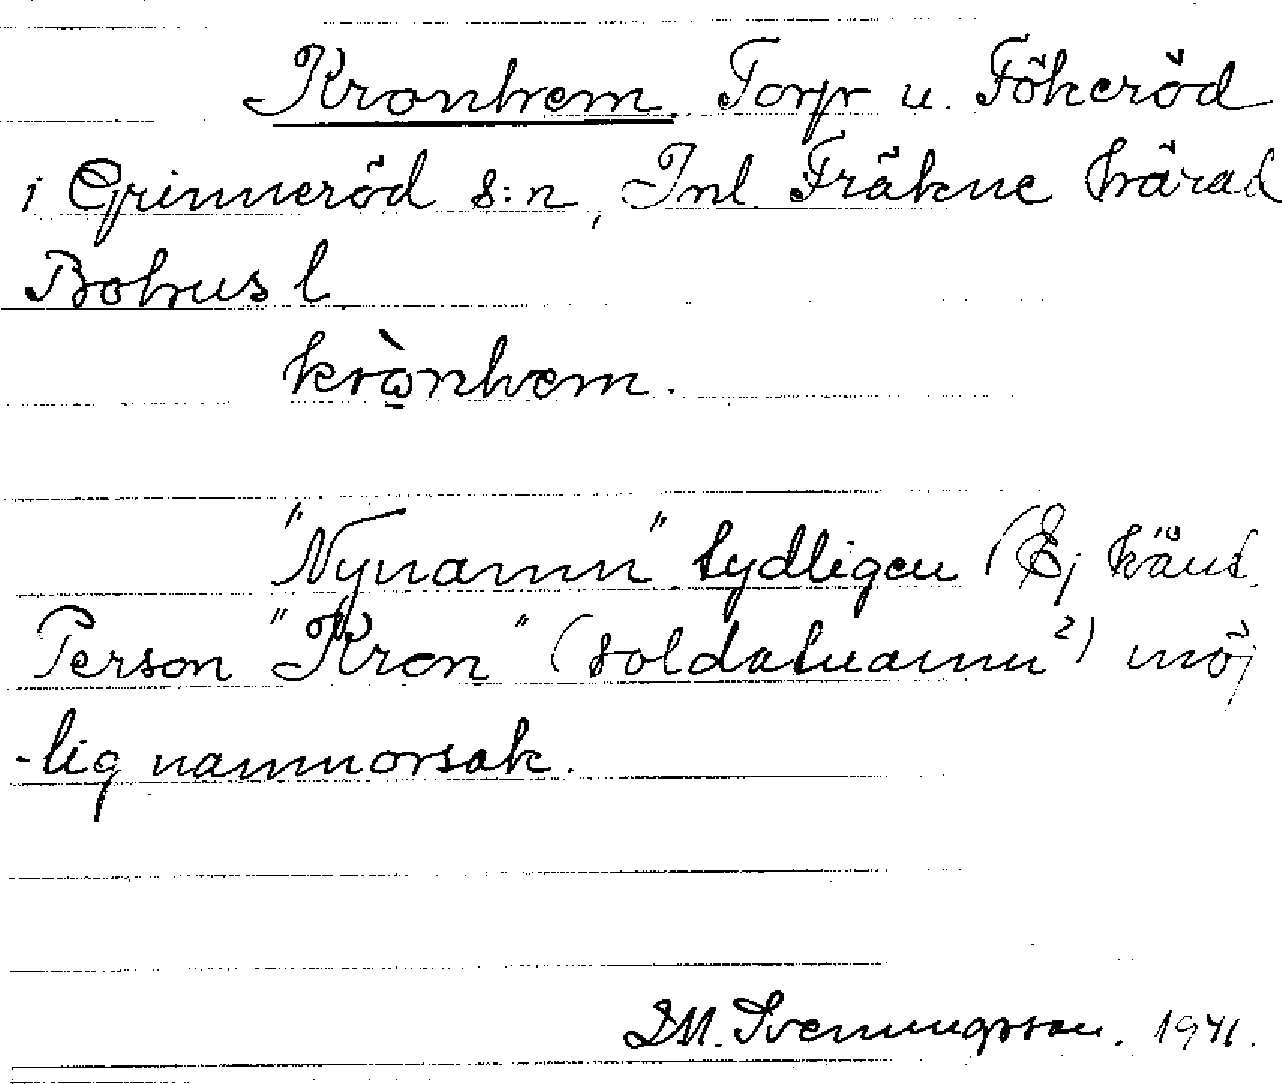 Kronhem. Torp u. Fökeröd
i Grinneröd s:n, Inl. Fräkne härad
Bohus l
krònhem.
"Nynamn" tydligen (Ej känd.
Person "Kron" (soldatnamn ?) möj
-lig namnorsak.
D.M. Svenningsson. 1941.